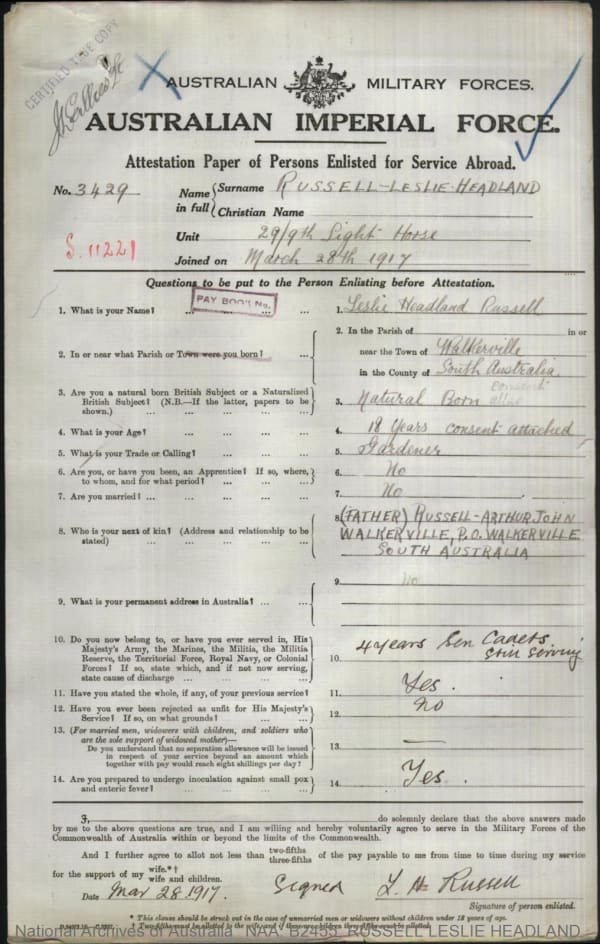 CERTIFIED TRUE COPY
AUSTRALIAN MILITARY FORCES.
AUSTRALIAN IMPERIAL FORCE.
Attestation Paper of Persons Enlisted for Service Abroad.
No. 3429
Name in full { Surname RUSSELL-LESLIE-HEADLAND
Christian Name
Unit 29/9th Light Horse
S. 11221
Joined on March 28th 1917
Questions to be put to the Person Enlisting before Attestation.
PAY BOOK No.
1. What is your Name? ... ... ... ... 1. Leslie Headland Russell
2. In or near what Parish or Town were you born? ... 2. In the Parish of in or
near the Town of Walkerville
in the County of South Australia.
consent
3. Are you a natural born British Subject or a Naturalized
British Subject? (N.B.—If the latter, papers to be
shown.) ... ... ... ... 3. Natural Born
4. What is your Age? ... ... ... ... 4. 18 Years consent attached
5. What is your Trade or Calling? ... ... ... 5. Gardener
6. Are you, or have you been, an Apprentice? If so, where,
to whom, and for what period? ... ... ... 6. No
7. Are you married? ... ... ... ... 7. No
8. Who is your next of kin? (Address and relationship to be
stated) ... ... ... ... 8. (FATHER) RUSSELL-ARTHUR JOHN
WALKERVILLE, P.O. WALKERVILLE
SOUTH AUSTRALIA
9. What is your permanent address in Australia? ... ... 9. No
10. Do you now belong to, or have you ever served in, His
Majesty's Army, the Marines, the Militia, the Militia
Reserve, the Territorial Force, Royal Navy, or Colonial
Forces? If so, state which, and if not now serving,
state cause of discharge ... ... ... 10. 4 years Sen Cadets
Still Serving
11. Have you stated the whole, if any, of your previous service? 11. Yes.
12. Have you ever been rejected as unfit for His Majesty's
Service? If so, on what grounds? ... ... 12. No
13. (For married men, widowers with children, and soldiers who
are the sole support of widowed mother)—
Do you understand that no separation allowance will be issued
in respect of your service beyond an amount which
together with pay would reach eight shillings per day? ... 13. —
14. Are you prepared to undergo inoculation against small pox
and enteric fever? ... ... ... ... 14. Yes.
I, do solemnly declare that the above answers made
by me to the above questions are true, and I am willing and hereby voluntarily agree to serve in the Military Forces of the
Commonwealth of Australia within or beyond the limits of the Commonwealth.
And I further agree to allot not less than two-fifths three-fifths of the pay payable to me from time to time during my service
for the support of my wife.*† wife and children.
Date Mar 28.1917. Signed L. H. Russell
Signature of person enlisted.
* This clause should be struck out in the case of unmarried men or widowers without children under 18 years of age.
† Two-fifths must be allotted to the wife, and if there are children three-fifths must be allotted.
National Archives of Australia NAA: B2455, RUSSELL LESLIE HEADLAND